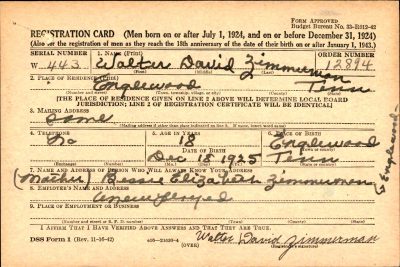 FORM APPROVED
Budget Bureau No. 33-R012-42
REGISTRATION CARD—(Men born on or after July 1, 1924, and on or before December 31, 1924)
(Also for the registration of men as they reach the 18th anniversary of the date of their birth on or after January 1, 1943.)
SERIAL NUMBER 1. NAME (Print) ORDER NUMBER
W 443 Walter David Zimmerman 12894
(First) (Middle) (Last)
2. PLACE OF RESIDENCE (Print)
Englewood Tenn
(Number and street) (Town, township, village, or city) (County) (State)
[THE PLACE OF RESIDENCE GIVEN ON LINE 2 ABOVE WILL DETERMINE LOCAL BOARD
JURISDICTION; LINE 2 OF REGISTRATION CERTIFICATE WILL BE IDENTICAL]
3. MAILING ADDRESS
Same
[Mailing address if other than place indicated on line 2. If same, insert word same]
4. TELEPHONE 5. AGE IN YEARS 6. PLACE OF BIRTH
No 18 Englewood
DATE OF BIRTH
Dec 18 1925 Tenn
(Exchange) (Number) (Mo.) (Day) (Yr.) (State or country)
7. NAME AND ADDRESS OF PERSON WHO WILL ALWAYS KNOW YOUR ADDRESS
(Mother) Bessie Elizabeth Zimmerman
Englewood
8. EMPLOYER'S NAME AND ADDRESS
Unemployed
9. PLACE OF EMPLOYMENT OR BUSINESS
(Number and street or R. F. D. number) (Town) (County) (State)
I AFFIRM THAT I HAVE VERIFIED ABOVE ANSWERS AND THAT THEY ARE TRUE.
DSS Form 1 (Rev. 11-16-42) (OVER) Walter David Zimmerman